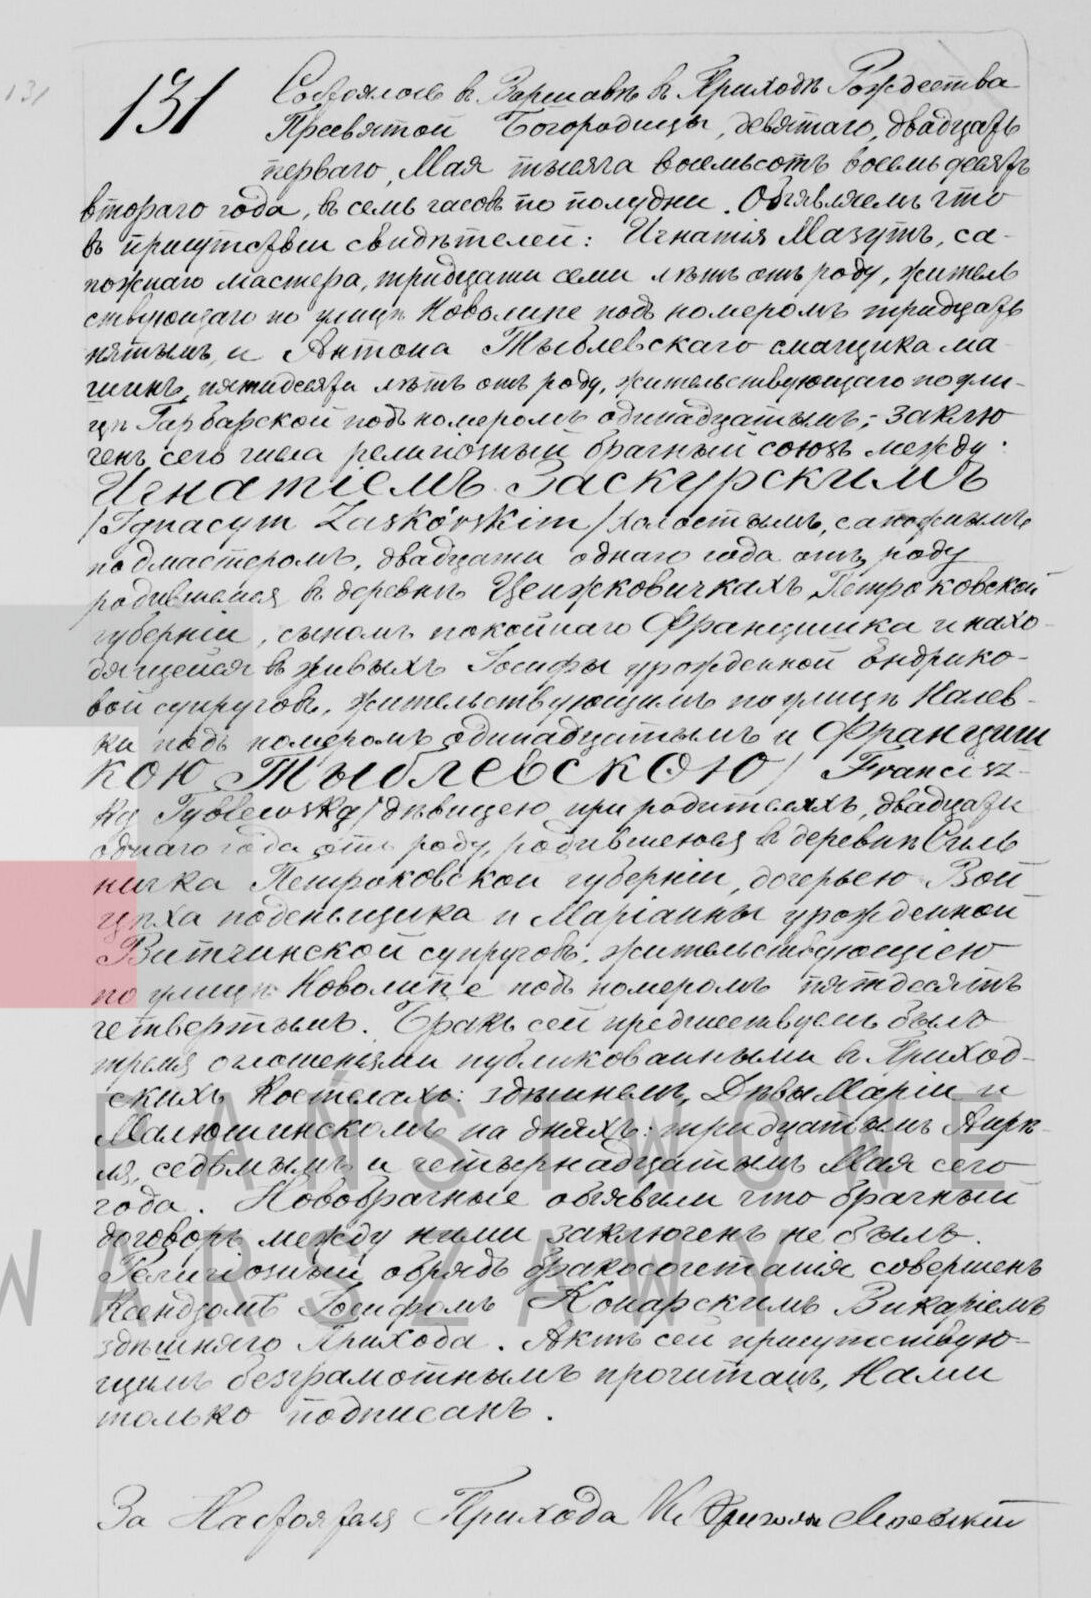 131
131
Состоялось въ Варшавѣ въ Приходѣ Рождества
Пресвятой Богородицы, девятаго, двадцать
перваго, Мая тысяча восемьсотъ восемьдесятъ
втораго года, въ семь часовъ по полудни. Объявляемъ что
въ присутствіи свидѣтелей: Игнатія Мазутъ, са-
пожнаго мастера, тридцати семи лѣтъ отъ роду, житель
ствующаго по улицѣ Новолипе подъ номеромъ тридцать
пятымъ, и Антона Тыблевскаго смащика ма-
шинъ, пятидесяти лѣтъ отъ роду, жительствующаго по ули-
цѣ Гарбарской подъ номеромъ одинадцатымъ; заклю
ченъ сего числа религіозный брачный союзъ между:
Игнатіемъ Заскурскимъ
/Ignacym Zaskórskim/ холостымъ, сапожнымъ
подмастеромъ, двадцати однаго года отъ роду
родившемся въ деревнѣ Ценжковичкахъ Петроковской
губерніи, сыномъ покойнаго Францишка и нахо-
дящейся въ живыхъ Іосифы урожденной Ендрико-
вой супруговъ, жительствующимъ по улицѣ Налев-
ки подъ номеромъ одинадцатымъ и Францишко
кою Тыблевскою / Francisz-
ką Tyblewską/ дѣвицею при родителяхъ, двадцати
однаго года отъ роду, родившеюся въ деревнѣ Силь
ничка Петроковской губерніи, дочерью Вой
цѣха поденьщика и Маріанны урожденной
Витчинской супруговъ, жительствующею
по улицѣ Новолипе подъ номеромъ пятдесятъ
четвертымъ. Бракъ сей предшествуемъ былъ
тремя оглошеніями публикованными въ Приход-
скихъ Костелахъ: здѣшнемъ, Дѣвы Маріи и
Малюшинскомъ на дняхъ: тридцатымъ Апрѣ-
ля, седьмымъ и четырнадцатымъ Мая сего
года. Новобрачные объявили что брачный
договоръ между ними заключенъ не былъ.
Религіозный обрядъ бракосочетанія совершенъ
Ксендзомъ Іосифомъ Конарскимъ Викаріемъ
здѣшняго Прихода. Актъ сей присутствую-
щимъ безграмотнымъ прочитанъ, Нами
только подписанъ.
За Настоятеля Прихода
PAŃSTWOWE
WARSZAWY